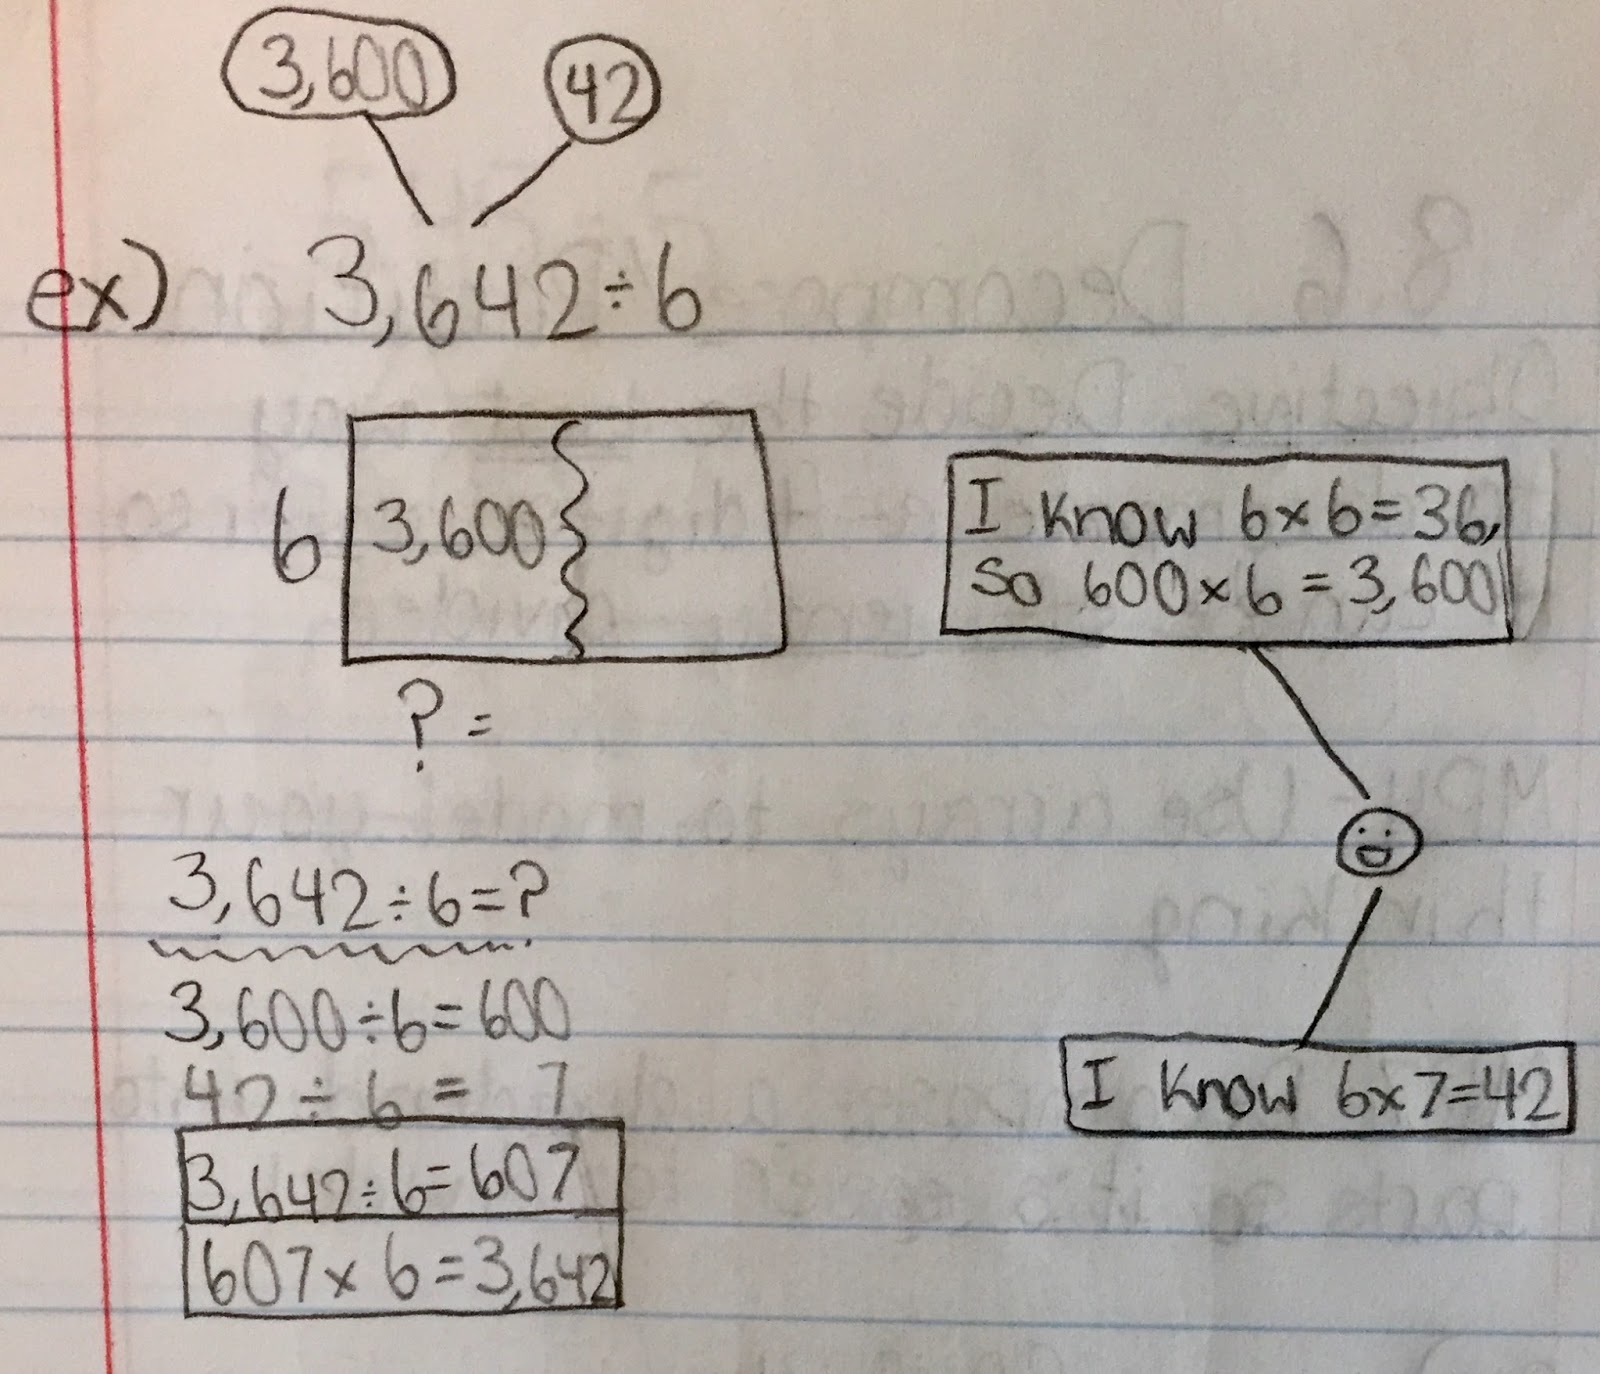 3,600 42
ex) 3,642÷6
6 3,600
?=
I know 6×6=36,
so 600×6=3,600
3,642÷6=?
3,600÷6=600
42÷6=7
I know 6×7=42
3,642÷6=607
607×6=3,642